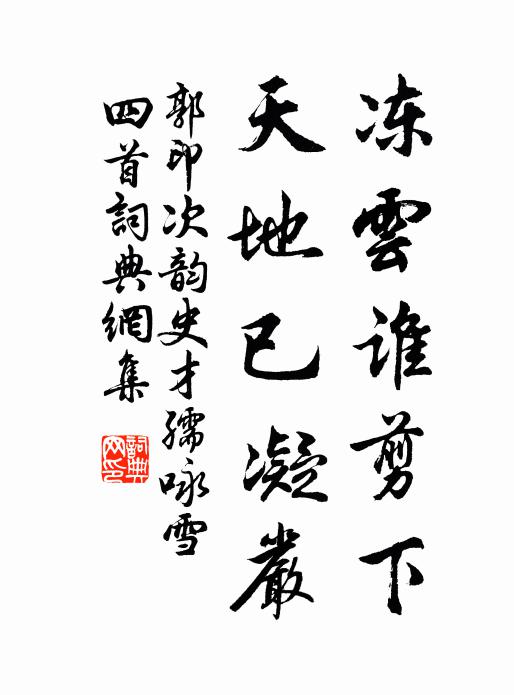 冻雲谁剪下
天地已凝嚴
郭印次韵史才孺咏雪
四首詞典網集
詞典网印